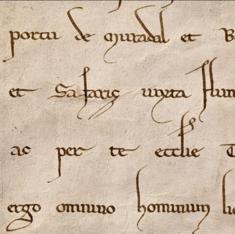 portu de muradal et
et Safariz iuxta flum
ac per te ecclie
ergo omnino hominum